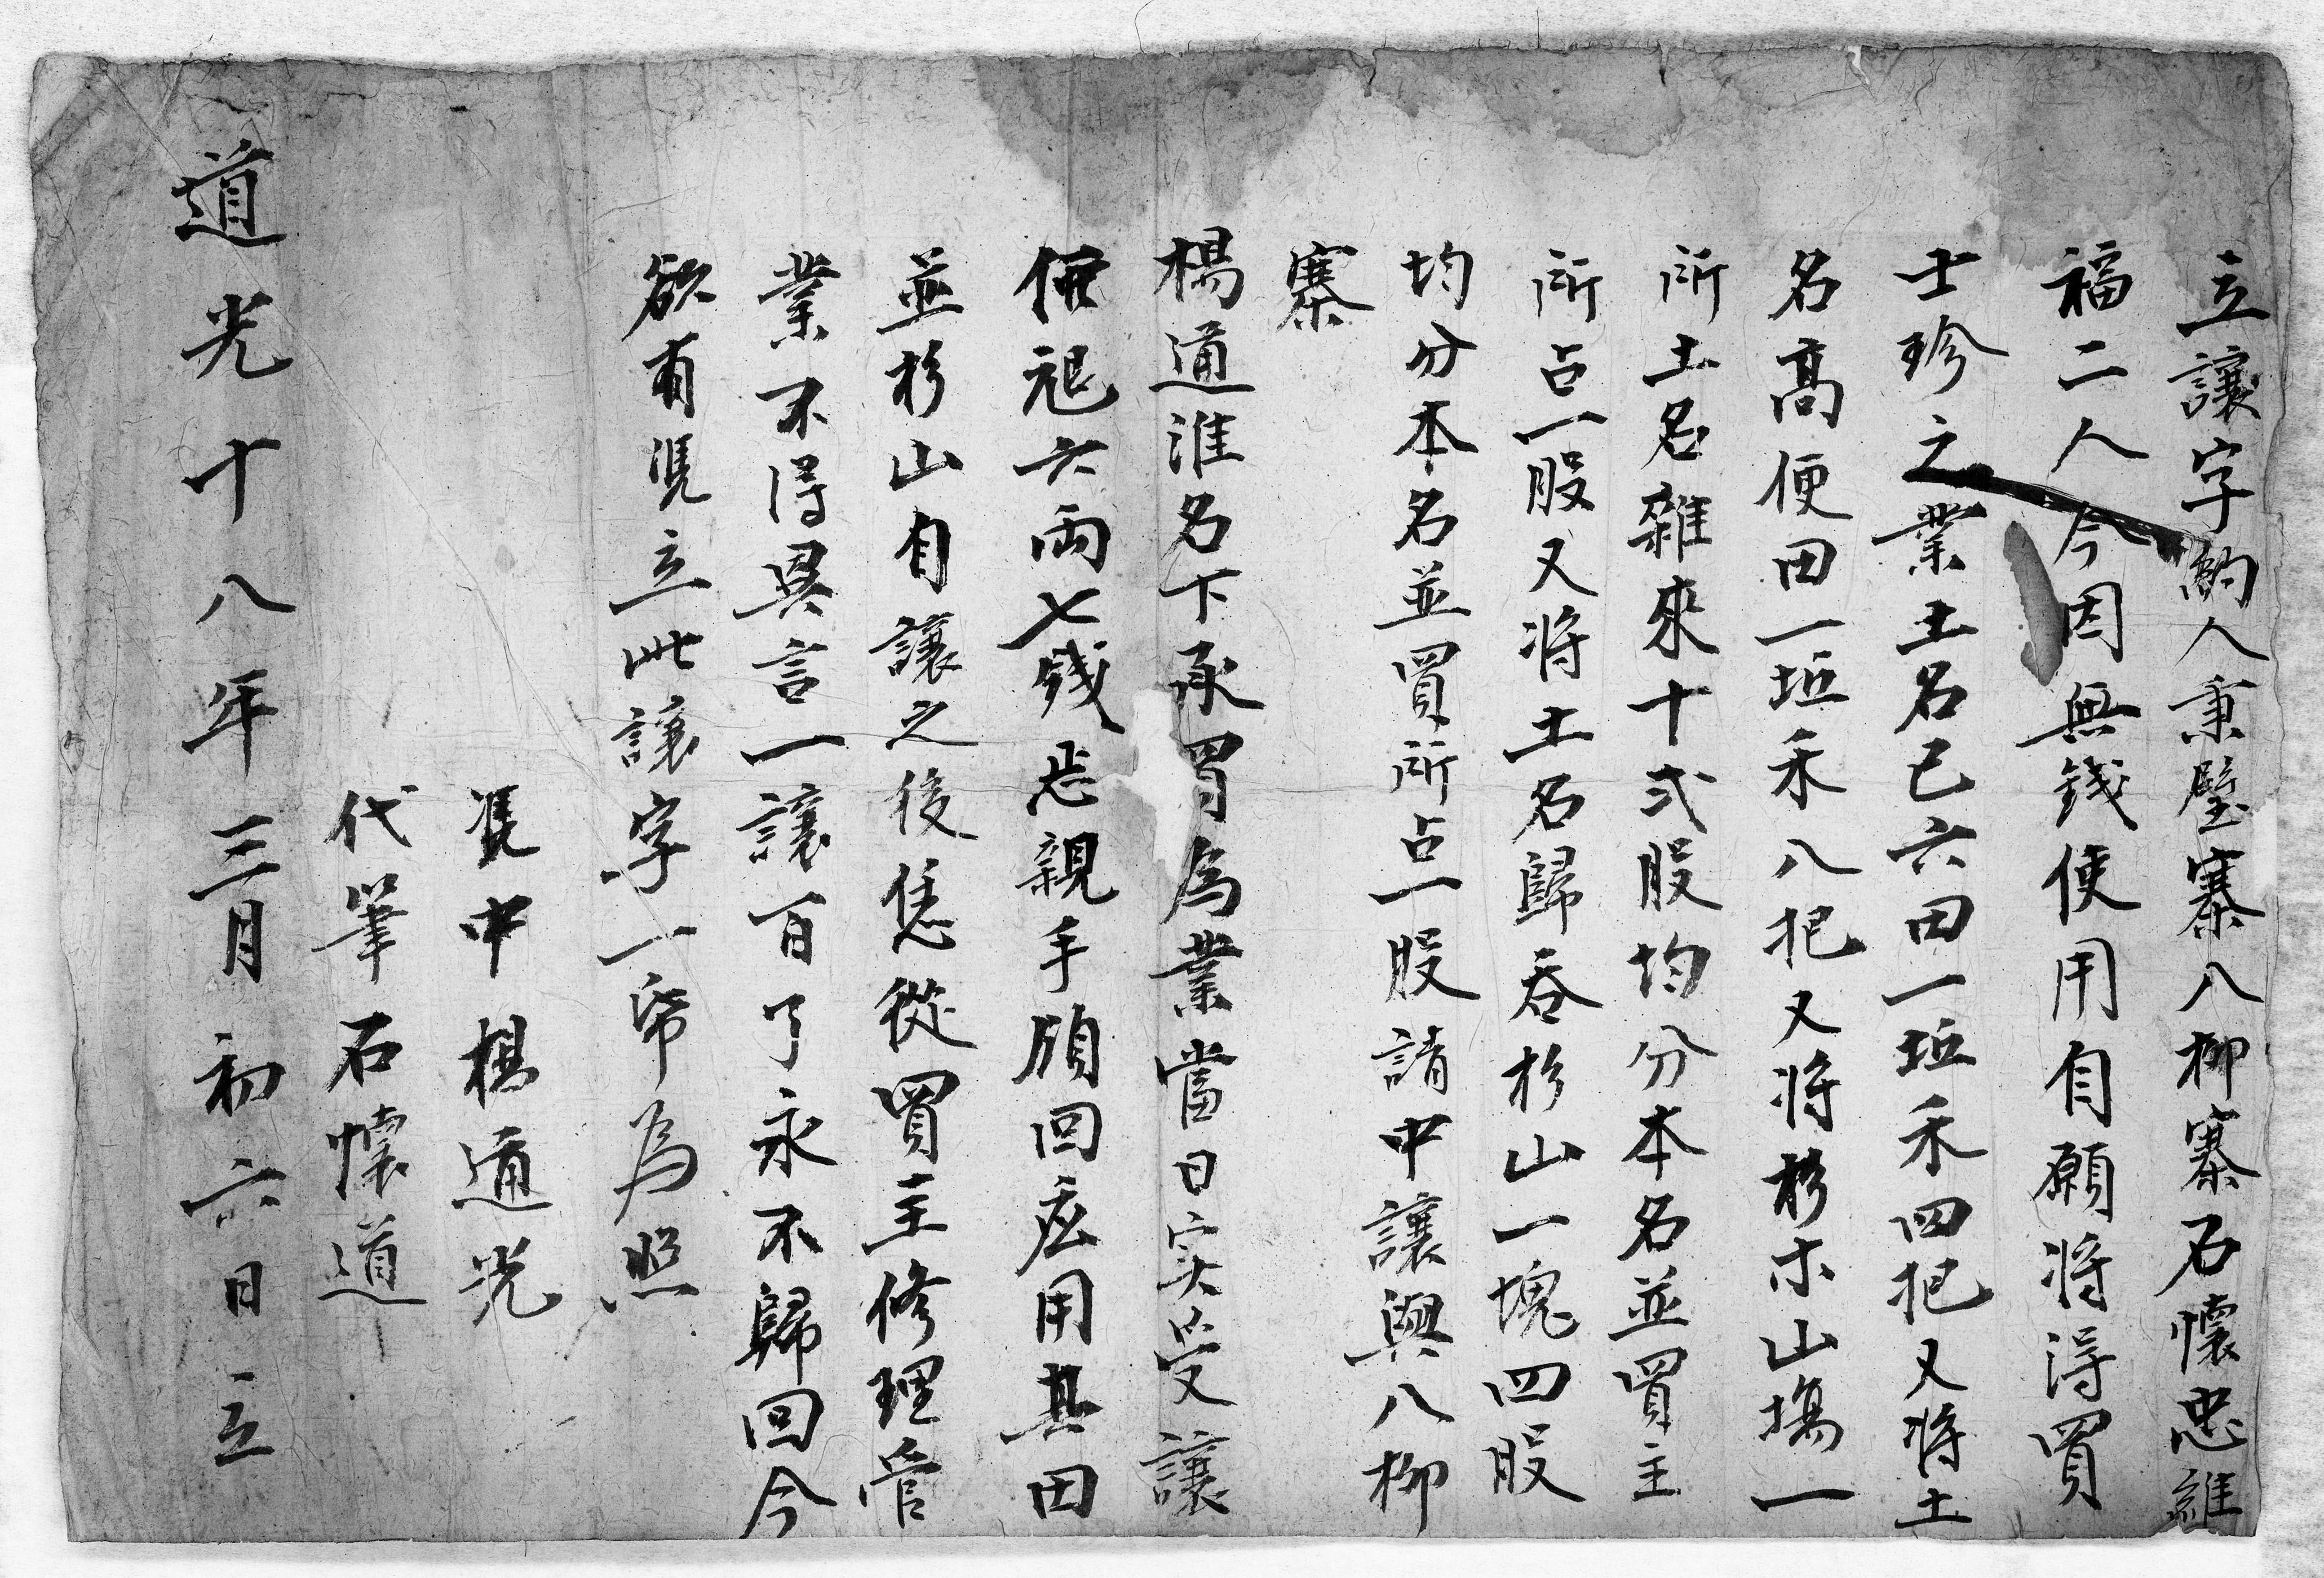 立讓字約人東壁寨八柳寨石懷忠維
福二人今因無錢使用自願將得買
士珍之業土名已六田一坵禾四把又將土
名高便田一坵禾八把又將杉木山塲一
所土名雜來十弍股均分本名並買主
所占一股又將土名歸吞杉山一塊四股
均分本名並買所占一股請中讓與八柳
寨
楊通淮名下承買為業當日实受讓
價銀六兩七錢恁親手領回应用其田
並杉山自讓之後恁從買主修理管
業不得異言一讓百了永不歸回今
欲有凴立此讓字一帋為照
凴中楊通光
代筆石懷道
道光十八年三月初六日立